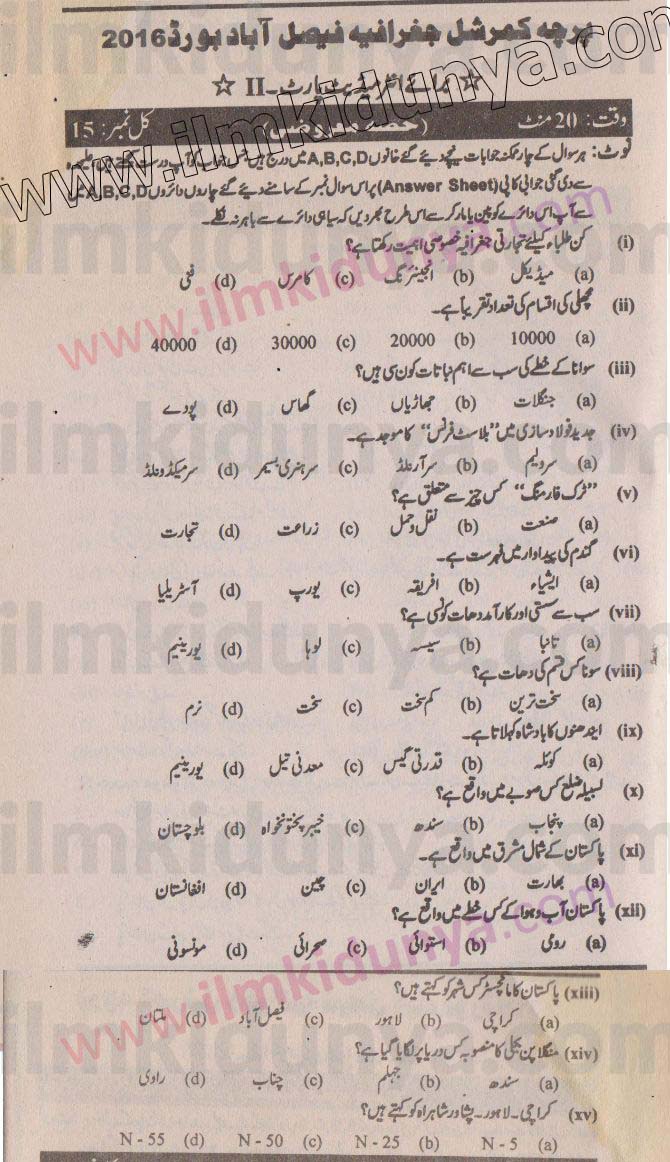 پرچہ کمرشل جغرافیہ فیصل آباد بورڈ 2016
☆ برائے انٹرمیڈیٹ پارٹ ۔ II ☆
وقت : 20 منٹ (حصہ معروضی) کل نمبر : 15
نوٹ : ہر سوال کے چار ممکنہ جوابات نیچے دیئے گئے خانوں A,B,C,D میں درج ہیں جس جواب کو آپ درست سمجھتے ہیں علیحدہ
سے دی گئی جوابی کاپی (Answer Sheet) پر اس سوال نمبر کے سامنے دیئے گئے چاروں دائروں A,B,C,D میں
سے آپ اس دائرے کو پین یا مارکر سے اس طرح بھر دیں کہ سیاہی دائرے سے باہر نہ نکلے۔
(i) کن طلباء کیلئے تجارتی جغرافیہ خصوصی اہمیت رکھتا ہے؟
(a) میڈیکل (b) انجینئرنگ (c) کامرس (d) فنی
(ii) مچھلی کی اقسام کی تعداد تقریباً ہے۔
(a) 10000 (b) 20000 (c) 30000 (d) 40000
(iii) سوانا کے خطے کی سب سے اہم نباتات کون سی ہیں؟
(a) جنگلات (b) جھاڑیاں (c) گھاس (d) پودے
(iv) جدید فولاد سازی میں ”بلاسٹ فرنس“ کا موجد ہے۔
(a) سر ولیم (b) سر آرنلڈ (c) سر ہنری بسیمر (d) سر میکڈونلڈ
(v) ”ٹرک فارمنگ“ کس چیز سے متعلق ہے؟
(a) صنعت (b) نقل و حمل (c) زراعت (d) تجارت
(vi) گندم کی پیداوار میں فہرست ہے۔
(a) ایشیاء (b) افریقہ (c) یورپ (d) آسٹریلیا
(vii) سب سے سستی اور کارآمد دھات کونسی ہے؟
(a) تانبا (b) سیسہ (c) لوہا (d) یورینیم
(viii) سونا کس قسم کی دھات ہے؟
(a) سخت ترین (b) کم سخت (c) سخت (d) نرم
(ix) ایندھنوں کا بادشاہ کہلاتا ہے۔
(a) کوئلہ (b) قدرتی گیس (c) معدنی تیل (d) یورینیم
(x) لسبیلہ ضلع کس صوبے میں واقع ہے؟
(a) پنجاب (b) سندھ (c) خیبر پختونخواہ (d) بلوچستان
(xi) پاکستان کے شمال مشرق میں واقع ہے۔
(a) بھارت (b) ایران (c) چین (d) افغانستان
(xii) پاکستان آب و ہوا کے کس خطے میں واقع ہے؟
(a) رومی (b) استوائی (c) صحرائی (d) مونسونی
(xiii) پاکستان کا مانچسٹر کس شہر کو کہتے ہیں؟
(a) کراچی (b) لاہور (c) فیصل آباد (d) ملتان
(xiv) منگلا پن بجلی کا منصوبہ کس دریا پر لگایا گیا ہے؟
(a) سندھ (b) جہلم (c) چناب (d) راوی
(xv) کراچی ۔ لاہور ۔ پشاور شاہراہ کو کہتے ہیں؟
(a) N - 5 (b) N - 25 (c) N - 50 (d) N - 55
www.ilmkidunya.com
www.ilmkidunya.com
www.ilmkidunya.com
ilmkidunya.com
ilmkidunya.com
ilmkidunya.com